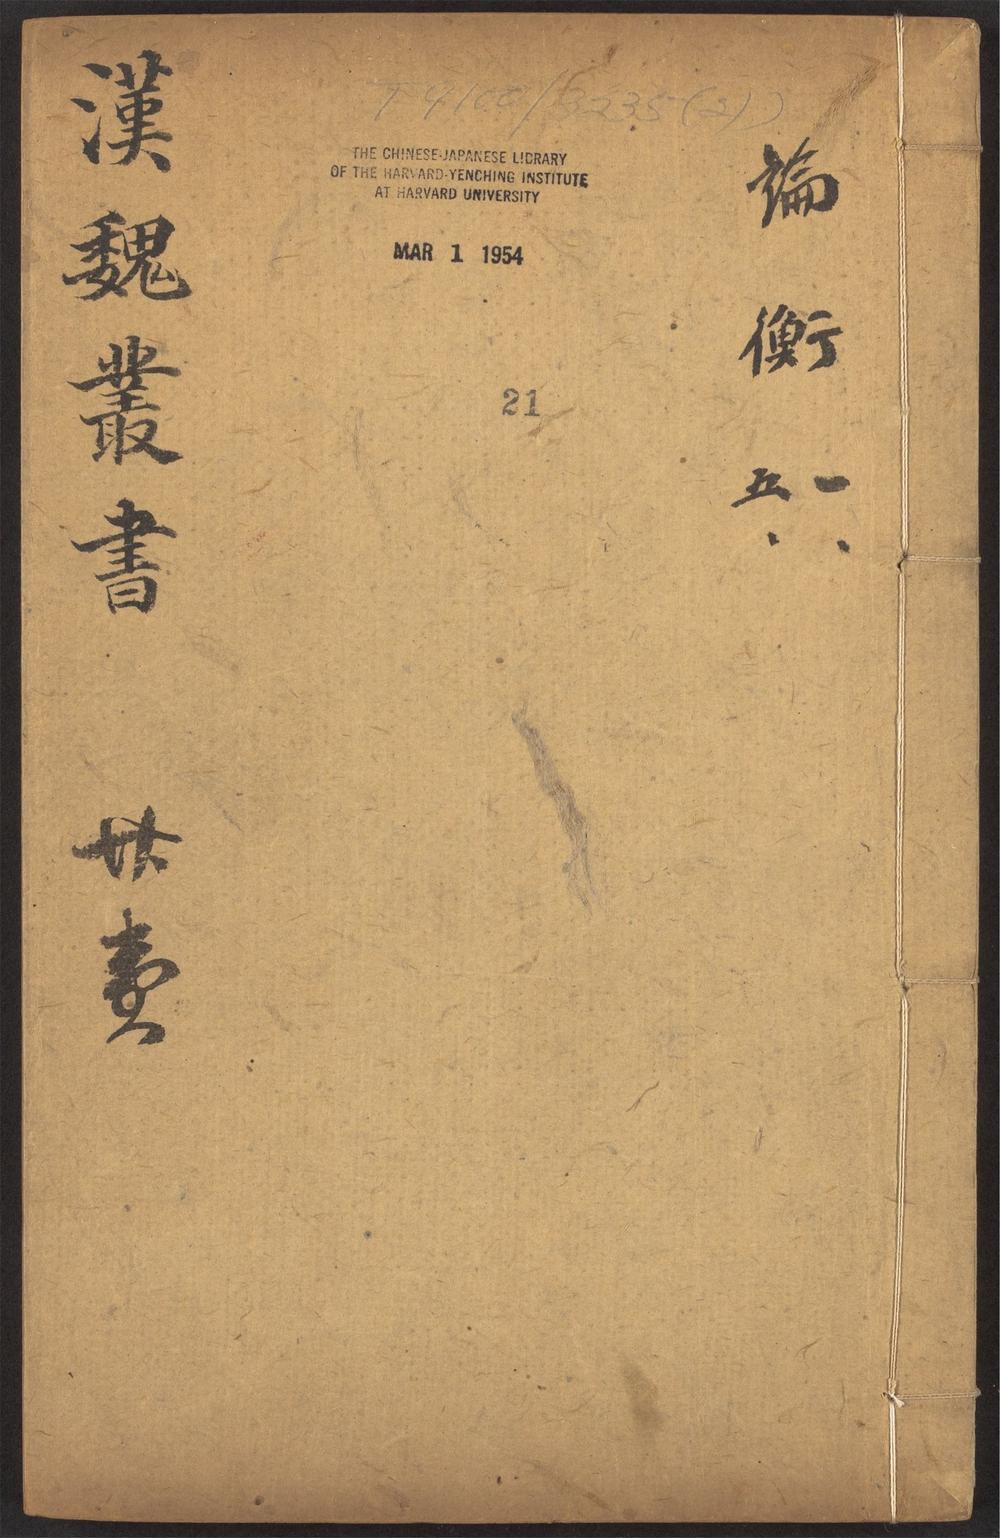 T 9100/3235(21)
THE CHINESE-JAPANESE LIBRARY
OF THE HARVARD-YENCHING INSTITUTE
AT HARVARD UNIVERSITY
MAR 1 1954
21
論衡
一、
五、
漢魏叢書 廿壹